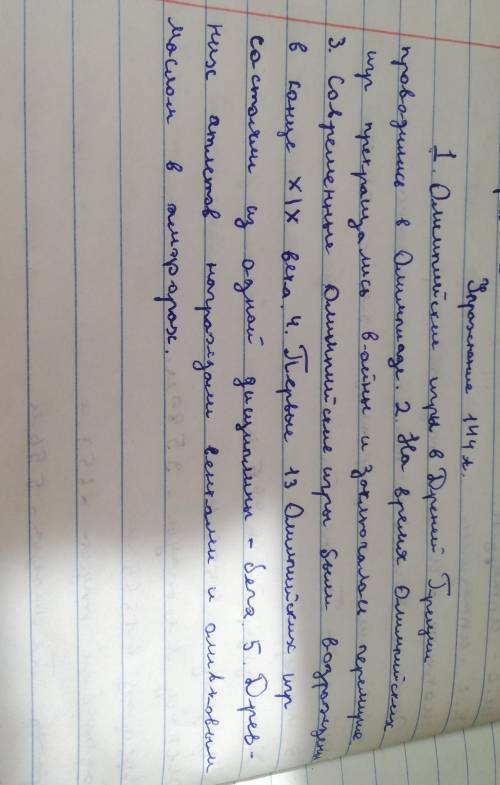 Упражнение 144 л.
1. Олимпийские игры в Древней Греции
проводились в Олимпиаде. 2. На время Олимпийских
игр прекращались войны и заключалось перемирие
3. Современные Олимпийские игры были возрождены
в конце XIX века. 4. Первые 13 Олимпийских игр
состояли из одной дисциплины - бега. 5. Древ-
них атлетов награждали венками и оливковым
маслом в амфорах.